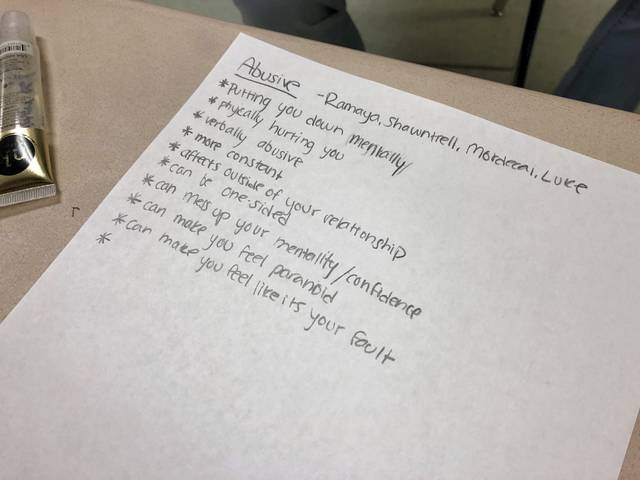 Abusive - Ramaya, Shauntrell, Mordecai, Luke
* Putting you down mentally/
* phycally hurting you
* verbally abusive
* more constant
* affects outside of your relationship
* can be one-sided
* can mess up your mentality/confidence
* can make you feel paranoid
* can make you feel like its your fault
*